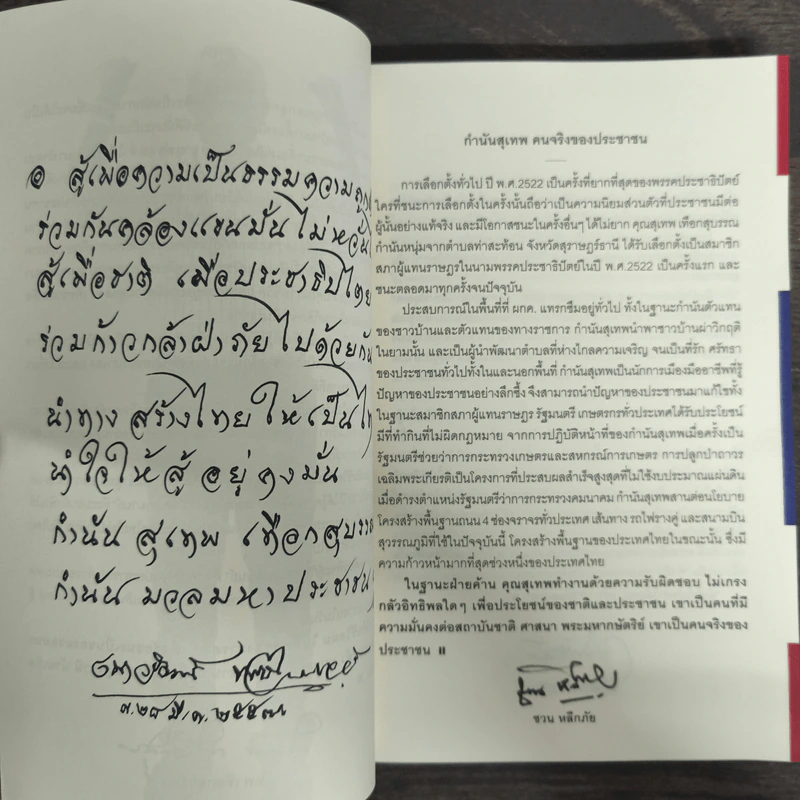 ๏ สู้เพื่อความเป็นธรรมความถูก
ร่วมกันคล้องแขนมั่นไม่หวั่น
สู้เพื่อชาติ เพื่อประชาธิปไตย
ร่วมก้าวกล้าฝ่าภัยไปด้วยกัน
นำทาง สร้างไทย ให้เป็นไท
นำใจให้สู้ อยู่คงมั่น
กำนัน สุเทพ เทือกสุบรร
กำนัน มวลมหาประชาชน
๓.๒๘ มี.ค. ๒๕๕๗
กำนันสุเทพ คนจริงของประชาชน
การเลือกตั้งทั่วไป ปี พ.ศ.2522 เป็นครั้งที่ยากที่สุดของพรรคประชาธิปัตย์
ใครที่ชนะการเลือกตั้งในครั้งนั้นถือว่าเป็นความนิยมส่วนตัวที่ประชาชนมีต่อ
ผู้นั้นอย่างแท้จริง และมีโอกาสชนะในครั้งอื่นๆ ได้ไม่ยาก คุณสุเทพ เทือกสุบรรณ
กำนันหนุ่มจากตำบลท่าสะท้อน จังหวัดสุราษฎร์ธานี ได้รับเลือกตั้งเป็นสมาชิก
สภาผู้แทนราษฎรในนามพรรคประชาธิปัตย์ในปี พ.ศ.2522 เป็นครั้งแรก และ
ชนะตลอดมาทุกครั้งจนปัจจุบัน
ประสบการณ์ในพื้นที่ที่ ผกค. แทรกซึมอยู่ทั่วไป ทั้งในฐานะกำนันตัวแทน
ของชาวบ้านและตัวแทนของทางราชการ กำนันสุเทพนำพาชาวบ้านผ่าวิกฤติ
ในยามนั้น และเป็นผู้นำพัฒนาตำบลที่ห่างไกลความเจริญ จนเป็นที่รัก ศรัทธา
ของประชาชนทั่วไปทั้งในและนอกพื้นที่ กำนันสุเทพเป็นนักการเมืองมืออาชีพที่รู้
ปัญหาของประชาชนอย่างลึกซึ้ง จึงสามารถนำปัญหาของประชาชนมาแก้ไขทั้ง
ในฐานะสมาชิกสภาผู้แทนราษฎร รัฐมนตรี เกษตรกรทั่วประเทศได้รับประโยชน์
มีที่ทำกินที่ไม่ผิดกฎหมาย จากการปฏิบัติหน้าที่ของกำนันสุเทพเมื่อครั้งเป็น
รัฐมนตรีช่วยว่าการกระทรวงเกษตรและสหกรณ์การเกษตร การปลูกป่าถาวร
เฉลิมพระเกียรติเป็นโครงการที่ประสบผลสำเร็จสูงสุดที่ไม่ใช้งบประมาณแผ่นดิน
เมื่อดำรงตำแหน่งรัฐมนตรีว่าการกระทรวงคมนาคม กำนันสุเทพสานต่อนโยบาย
โครงสร้างพื้นฐานถนน 4 ช่องจราจรทั่วประเทศ เส้นทาง รถไฟรางคู่ และสนามบิน
สุวรรณภูมิที่ใช้ในปัจจุบันนี้ โครงสร้างพื้นฐานของประเทศไทยในขณะนั้น ซึ่งมี
ความก้าวหน้ามากที่สุดช่วงหนึ่งของประเทศไทย
ในฐานะฝ่ายค้าน คุณสุเทพทำงานด้วยความรับผิดชอบ ไม่เกรง
กลัวอิทธิพลใดๆ เพื่อประโยชน์ของชาติและประชาชน เขาเป็นคนที่มี
ความมั่นคงต่อสถาบันชาติ ศาสนา พระมหากษัตริย์ เขาเป็นคนจริงของ
ประชาชน
ชวน หลีกภัย